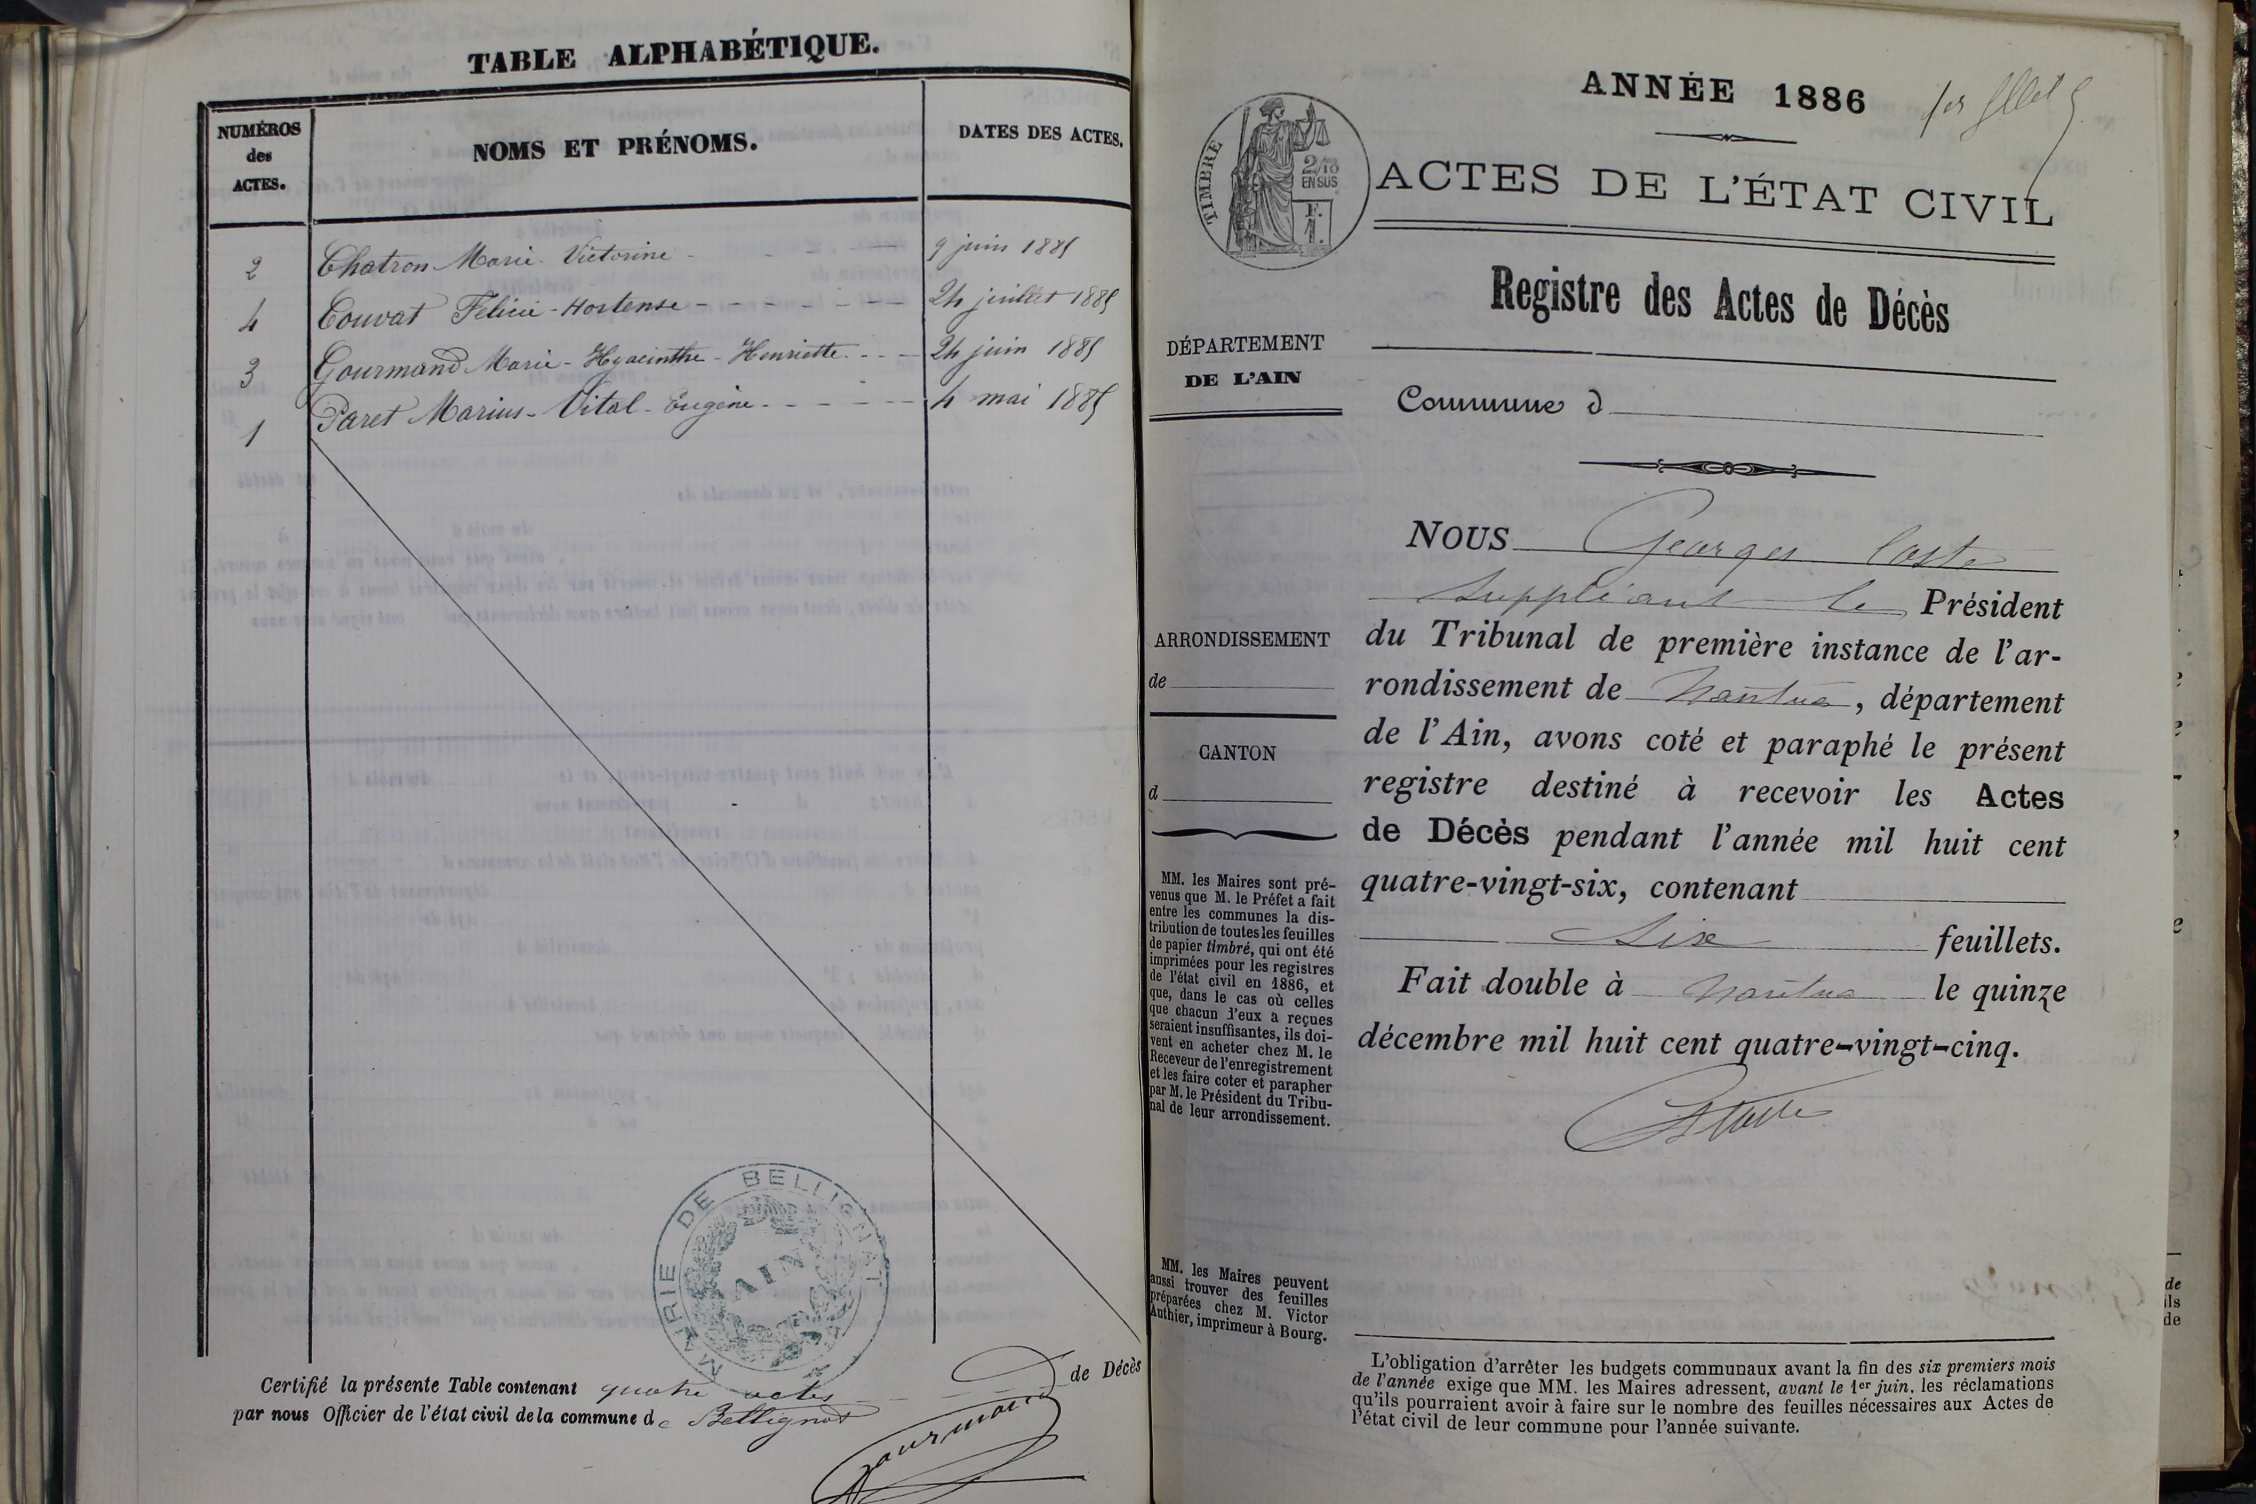 TABLE ALPHABÉTIQUE.
NUMÉROS
des
ACTES.
NOMS ET PRÉNOMS.
DATES DES ACTES.
2 Chatron Marie Victorine 9 juin 1885
4 Couvat Félicie-Hortense 24 juillet 1885
3 Gourmand Marie-Hyacinthe-Henriette 24 juin 1885
1 Paret Marius-Vital-Eugène 4 mai 1885
MAIRIE DE BELLIGNAT
AIN
Certifié la présente Table contenant quatre actes de Décès
par nous Officier de l'état civil de la commune de Bellignat
Gourmand
ANNÉE 1886
1er fllet
TIMBRE
2/10
EN SUS
F.
1.
ACTES DE L'ÉTAT CIVIL
Registre des Actes de Décès
DÉPARTEMENT
DE L'AIN
Commune d
ARRONDISSEMENT
de
CANTON
d
MM. les Maires sont pré-
venus que M. le Préfet a fait
entre les communes la dis-
tribution de toutes les feuilles
de papier timbré, qui ont été
imprimées pour les registres
de l'état civil en 1886, et
que, dans le cas où celles
que chacun d'eux a reçues
seraient insuffisantes, ils doi-
vent en acheter chez M. le
Receveur de l'enregistrement
et les faire coter et parapher
par M. le Président du Tribu-
nal de leur arrondissement.
MM. les Maires peuvent
aussi trouver des feuilles
préparées chez M. Victor
Authier, imprimeur à Bourg.
NOUS Georges Coste
suppléant le Président
du Tribunal de première instance de l'ar-
rondissement de Nantua, département
de l'Ain, avons coté et paraphé le présent
registre destiné à recevoir les Actes
de Décès pendant l'année mil huit cent
quatre-vingt-six, contenant
six feuillets.
Fait double à Nantua le quinze
décembre mil huit cent quatre-vingt-cinq.
L'obligation d'arrêter les budgets communaux avant la fin des six premiers mois
de l'année exige que MM. les Maires adressent, avant le 1er juin, les réclamations
qu'ils pourraient avoir à faire sur le nombre des feuilles nécessaires aux Actes de
l'état civil de leur commune pour l'année suivante.